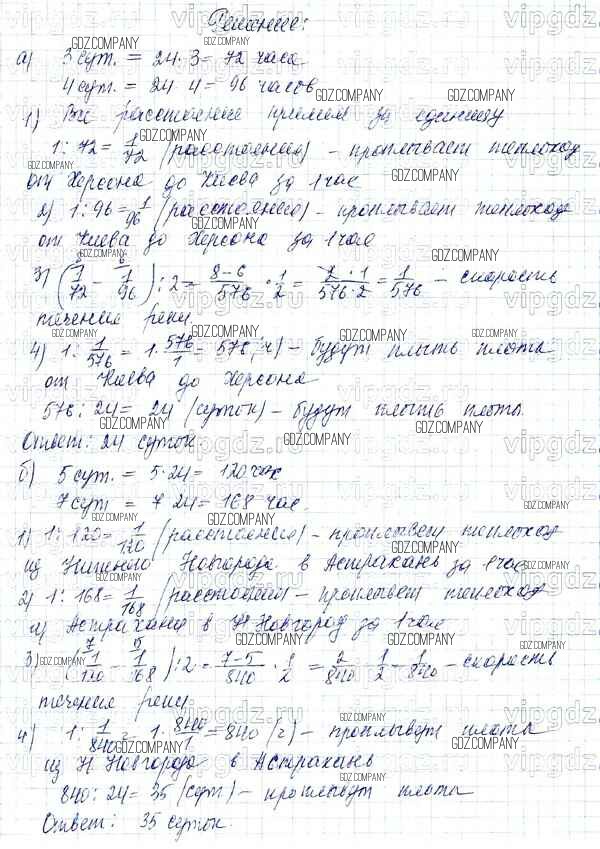 Решение:
а) 3 сут. = 24 · 3 = 72 часа
4 сут. = 24 · 4 = 96 часов
1) Все расстояние примем за единицу
1 : 72 = 1/72 (расстояния) – проплывает теплоход
от Херсона до Киева за 1 час
2) 1 : 96 = 1/96 (расстояния) – проплывает теплоход
от Киева до Херсона за 1 час
3) (1/72 - 1/96) : 2 = (8-6)/576 · 1/2 = (2 · 1)/(576 · 2) = 1/576 – скорость
течения реки.
4) 1 : 1/576 = 1 · 576/1 = 576 (ч) – будут плыть плоты
от Киева до Херсона
576 : 24 = 24 (суток) – будут плыть плоты.
Ответ: 24 суток.
б) 5 сут. = 5 · 24 = 120 час
7 сут = 7 24 = 168 час.
1) 1 : 120 = 1/120 (расстояния) – проплывет теплоход
из Нижнего Новгорода в Астрахань за 1 час
2) 1 : 168 = 1/168 (расстояния) – проплывет теплоход
из Астрахани в Н Новгород за 1 час
3) (1/120 - 1/168) : 2 = (7-5)/840 · 1/2 = 2/840 · 1/2 = 1/840 – скорость
течения реки
4) 1 : 1/840 = 1 · 840/1 = 840 (ч) – проплывут плоты
из Н Новгорода в Астрахань
840 : 24 = 35 (сут.) – проплывут плоты
Ответ: 35 суток.
GDZ.COMPANY
vipgdz.ru